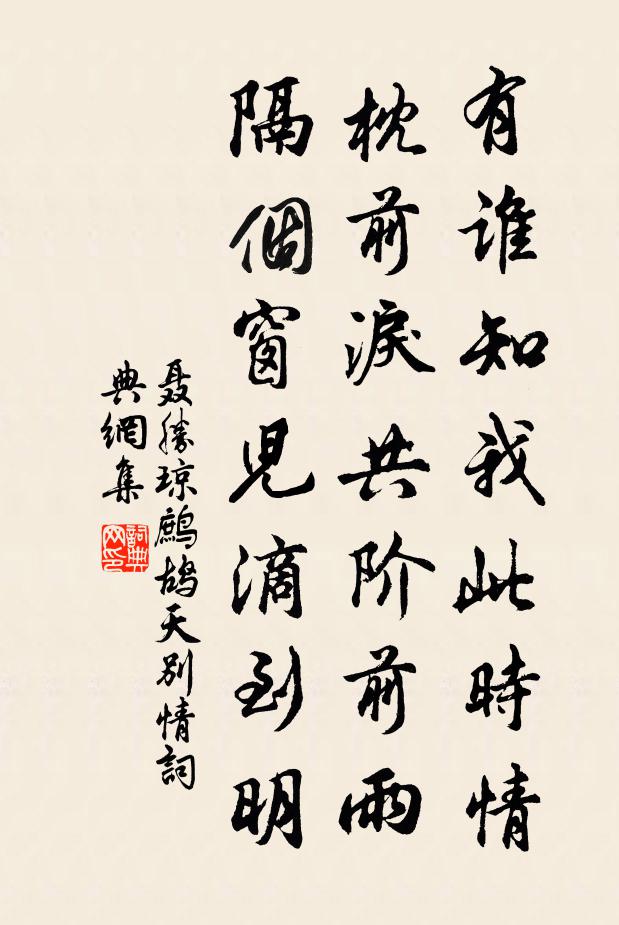 有谁知我此時情
枕前淚共阶前雨
隔個窗児滴到明
聂勝琼鷓鸪天别情詞
典網集
詞典网印